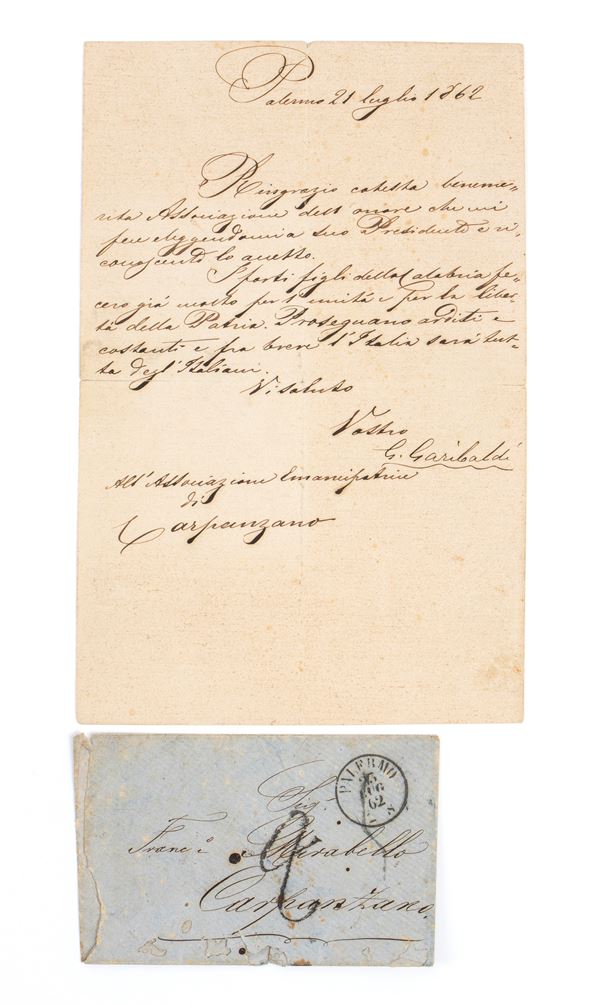 Palermo 21 luglio 1862
Ringrazio cotesta beneme-
rita Associazione dell'onore che mi
fece eleggendomi a suo Presidente e ri-
conoscente lo accetto.
I forti figli della Calabria fe-
cero già molto per l'unità e per la liber-
tà della Patria. Proseguano arditi e
costanti e fra breve l'Italia sarà tut-
ta degl'Italiani.
Vi saluto
Vostro
G. Garibaldi
All'Associazione Emancipatrice
di
Carpanzano
PALERMO
25
LUG
62
8
Sigr
Franc.o Mirabello
2
Carpanzano.